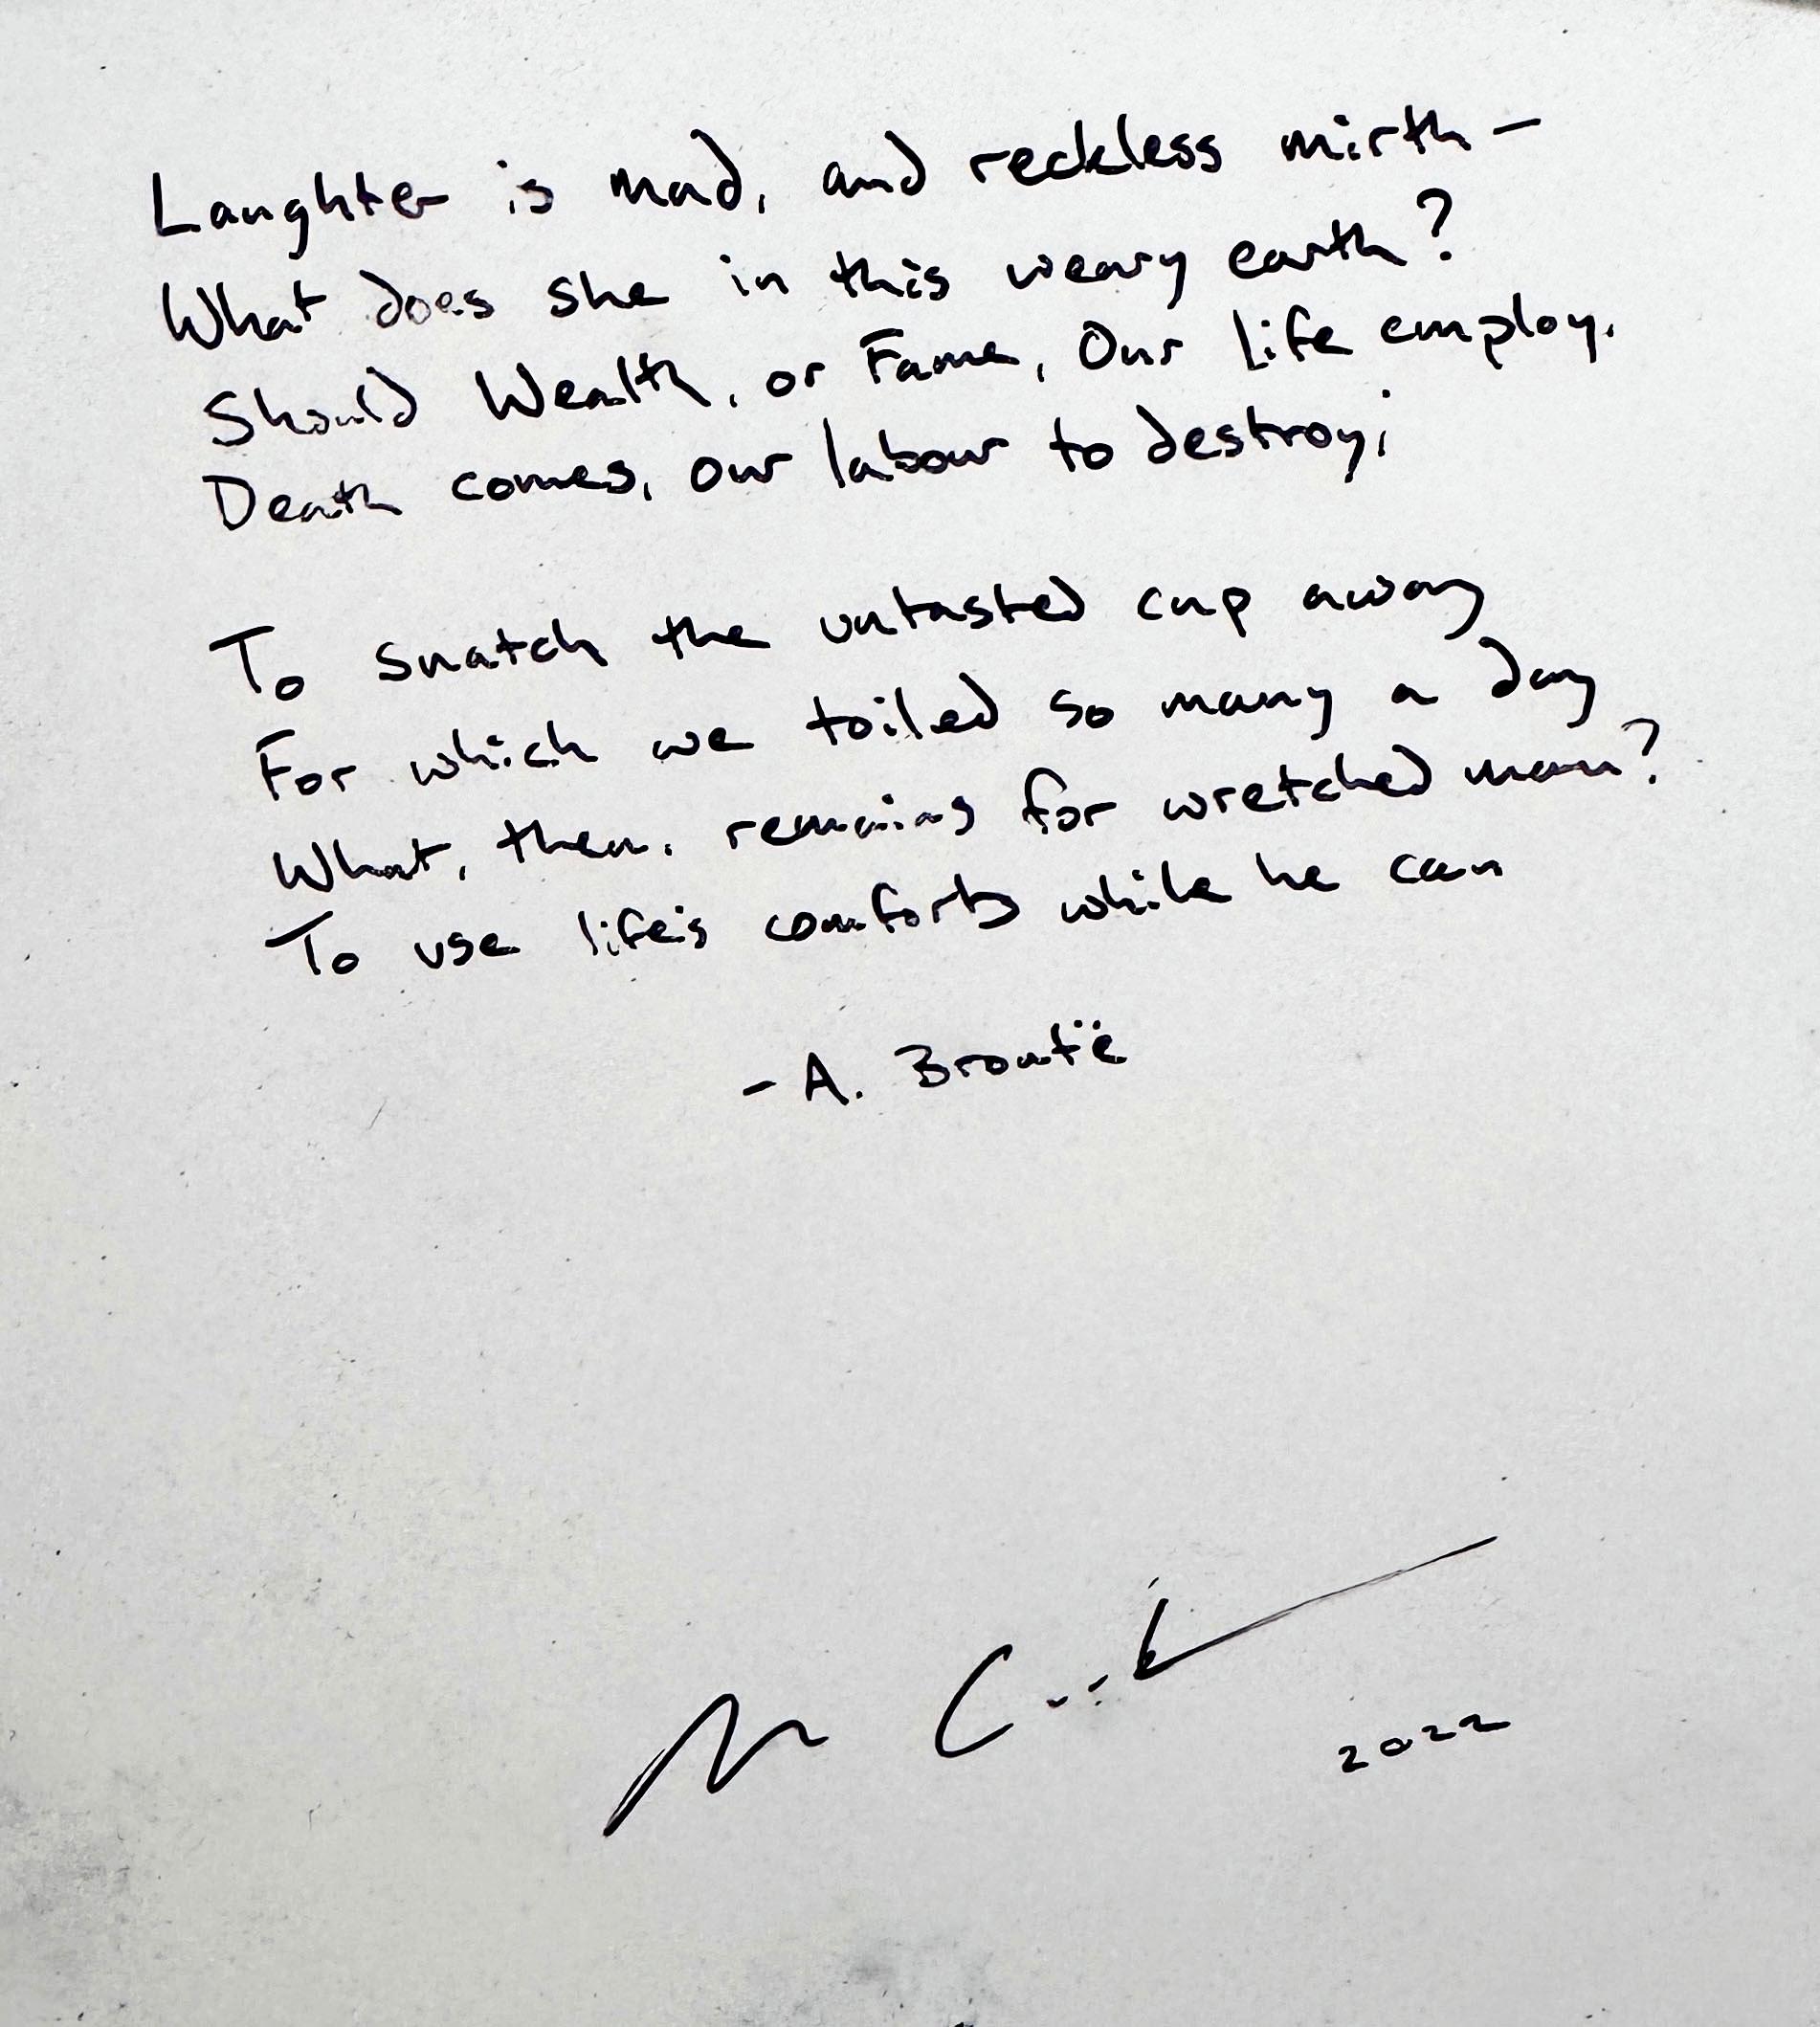 Laughter is mad, and reckless mirth –
What does she in this weary earth?
Should Wealth, or Fame, Our Life employ,
Death comes, our labour to destroy;
To snatch the untasted cup away
For which we toiled so many a day
What, then, remains for wretched man?
To use life's comforts while he can
- A. Brontë
2022